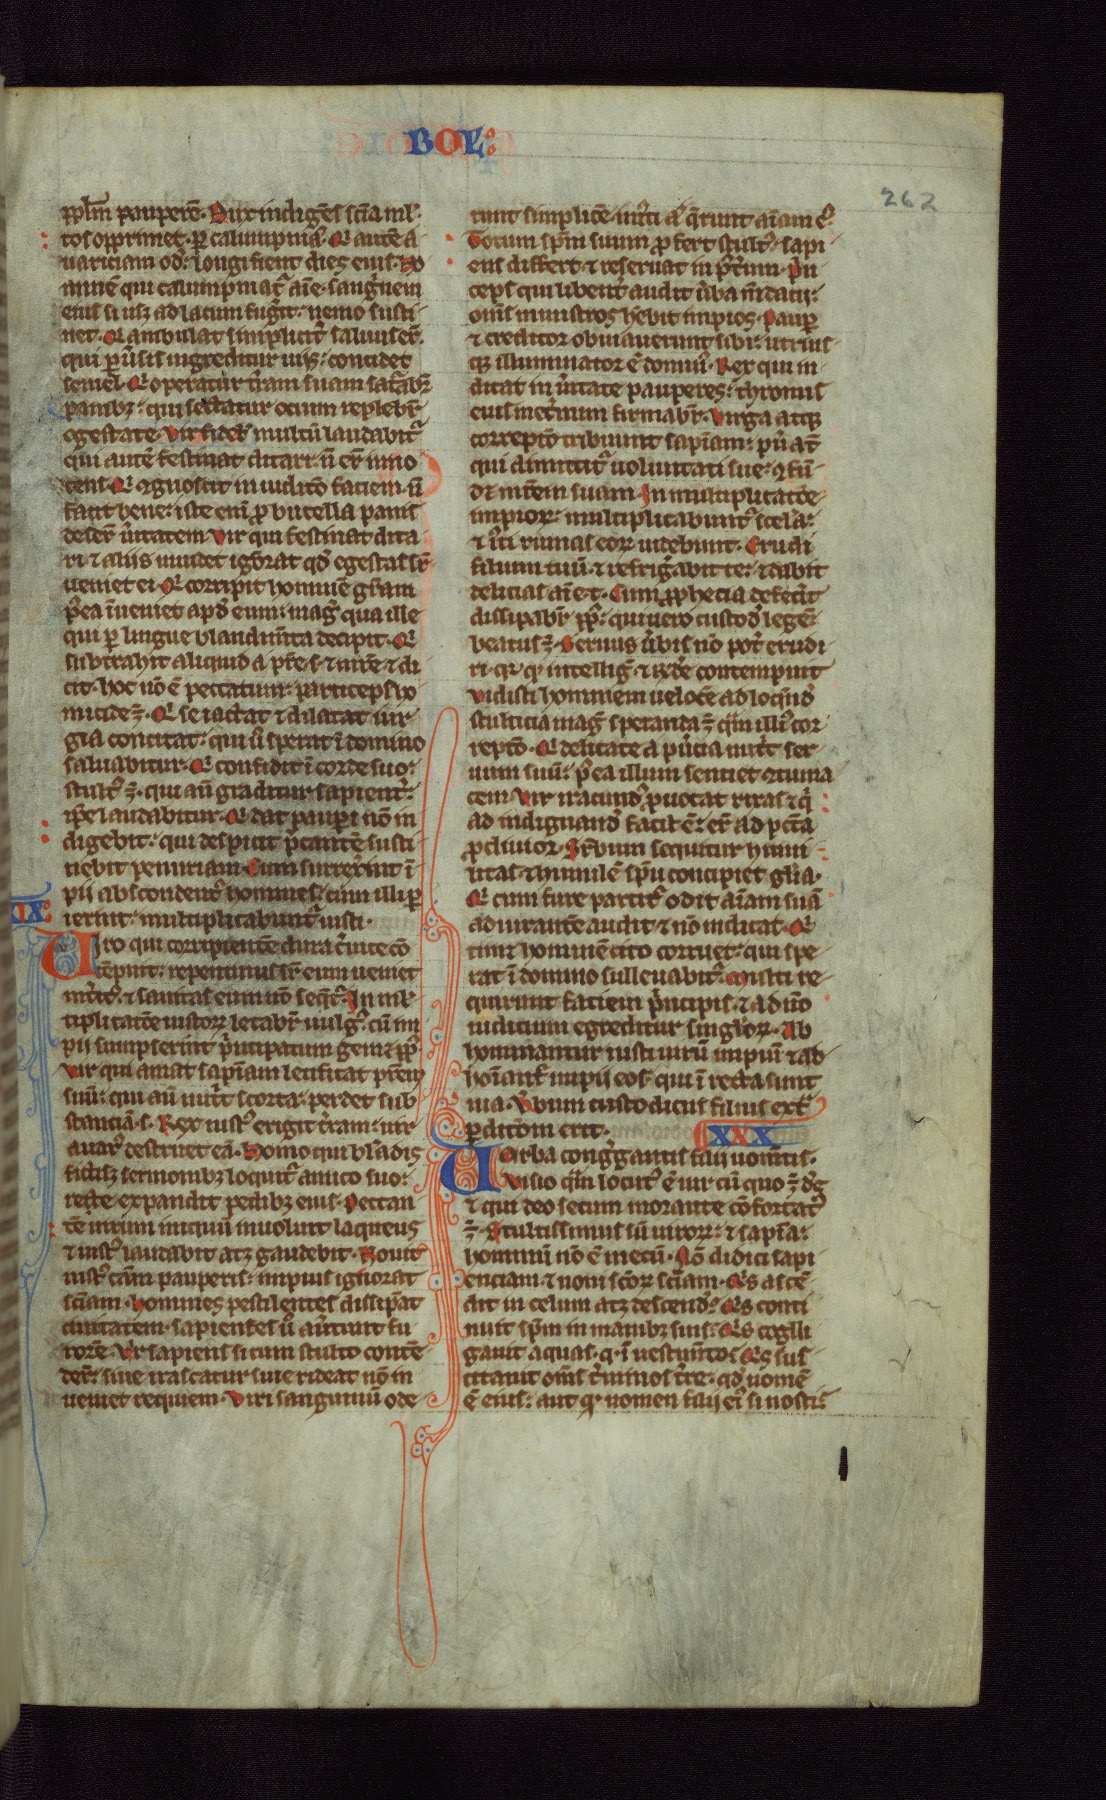 BOL
262
pplm pauperē. Dux indigēs sciā ml
tos opprimet per calumpniā. Qi autē a
uariciam odit longi fient dies eius. Ho
minē qui calumpniat aīe sanguinem
eius si usq ad lacum fugit nemo susti
net. Qi ambulat simplicit saluus erit.
qui puersis ingreditur uiis concidet
semel. Qi operatur tram suam saciabr
panibz qui sectatur ocium replebr
egestate. Vir fidel multū laudabit
qui autē festinat ditari n erit inno
cens. Qi cognoscit in iudicio faciem n
facit bene iste eni pro bucella panis
deser ueritatem. Vir qui festinat dita
ri et aliis inuidet ignorat qd egestas supr
ueniet ei. Qi corripit hominē gram
postea inueniet apd eum magis qua ille
qui per lingue blandimta decipit. Qi
subtrahit aliquid a patre suo et matre et di
cit hoc nō ē peccatum particeps ho
micide est. Qi se iactat et dilatat iur
gia concitat qui u sperat ī domino
saluabitur. Qi confidit ī corde suo
stultus est. qui aū graditur sapient
ipse laudabitur. Qi dat pauperi nō in
digebit qui despicit pcantē susti
nebit penuriam. Cum surrexerint ī
pii abscondent homines cum illi per
ierint multiplicabunt iusti.
XIX
Uiro qui corripientē dura ceruice cō
tēpnit repentinus supr eum ueniet
interitus et sanitas eum nō sequet. In ml
tiplicatōe iustorum letabr uulgus cū im
pii sumpserint principatum gemet pplus
Vir qui amat sapiam letificat patrem
suū qui aū nutrit scorta perdet sub
stanciā s. Rex iustus erigit tram uir
auarus destruet eā. Homo qui blādis
fictisqz sermonibz loquit amico suo
rete expandit pedibz eius. Peccan
tē uirum iniquū inuoluit laqueus
et iustus laudabit atqz gaudebit. Nouit
iustus cām pauperis impius ignorat
sciam. Homines pestilentes dissipāt
ciuitatem sapientes u auertunt fu
rorē. Vir sapiens si cum stulto contē
derit siue irascatur siue rideat nō in
ueniet requiem. Viri sanguinū ode
runt simplicē iusti aut querunt aīam ei
Totum spm suum profert stultus sapi
ens differt et reseruat in posterum. Prin
ceps qui libent audit uba mdacii
omīs ministros hebit impios. Pauper
et creditor obuiauerunt sibi utrius
qz illuminator ē dominus. Rex qui iu
dicat in ueritate pauperes thronus
eius in eternum firmabr. Virga atqz
correptio tribuunt sapiam puer aut
qui dimittit uoluntati sue confun
det matrem suam. In multiplicatōe
impiorum multiplicabunt scelera
et iusti ruinas eorum uidebunt. Erudi
filium tuū et refrigerabit te et dabit
delicias aīe t. Cum prophecia defecerit
dissipabr pplus qui uero custodit legē
beatus est. Seruus uerbis nō potest erudi
ri quia qd intelligis et ridere contempnit
Vidisti hominem uelocē ad loquend
stulticia magis speranda est qm illius cor
reptio. Qi delicate a puericia nutrit ser
uum suū postea illum sentiet contuma
cem. Vir iracundus prouocat rixas et qui
ad indignand facilis est erit ad peccta
procliuior. Superbum sequitur humi
litas et humilē spu concipiet gloria.
Qi cum fure partit odit aīam suā
adiurantē audit et nō indicat. Qi
timet hominē cito corruet qui spe
rat ī domino subleuabit. Multi re
quirunt faciem principis et a dno
iudicium egreditur singlorum. Ab
hominantur iusti uirū impiū et ab
homant impii eos qui ī recta sunt
uia. Verbum custodiens filius extra
perditiōem erit.
XXX
Uerba congregantis filii uomentis.
Visio qm locutus ē uir cū quo est ds
et qui deo secum morante confortatus
est. Stultissimus sū uirorum et sapiencia
hominū nō ē mecū. Nō didici sapi
enciam et noui scorum sciam. Qis ascē
dit in celum atqz descendit. Qis conti
nuit spm in manibz suis. Qis colli
gauit aquas qi ī uestimto. Qis sus
citauit oms terminos terre qd nomē
ē eius aut qd nomen filii ei si nosti